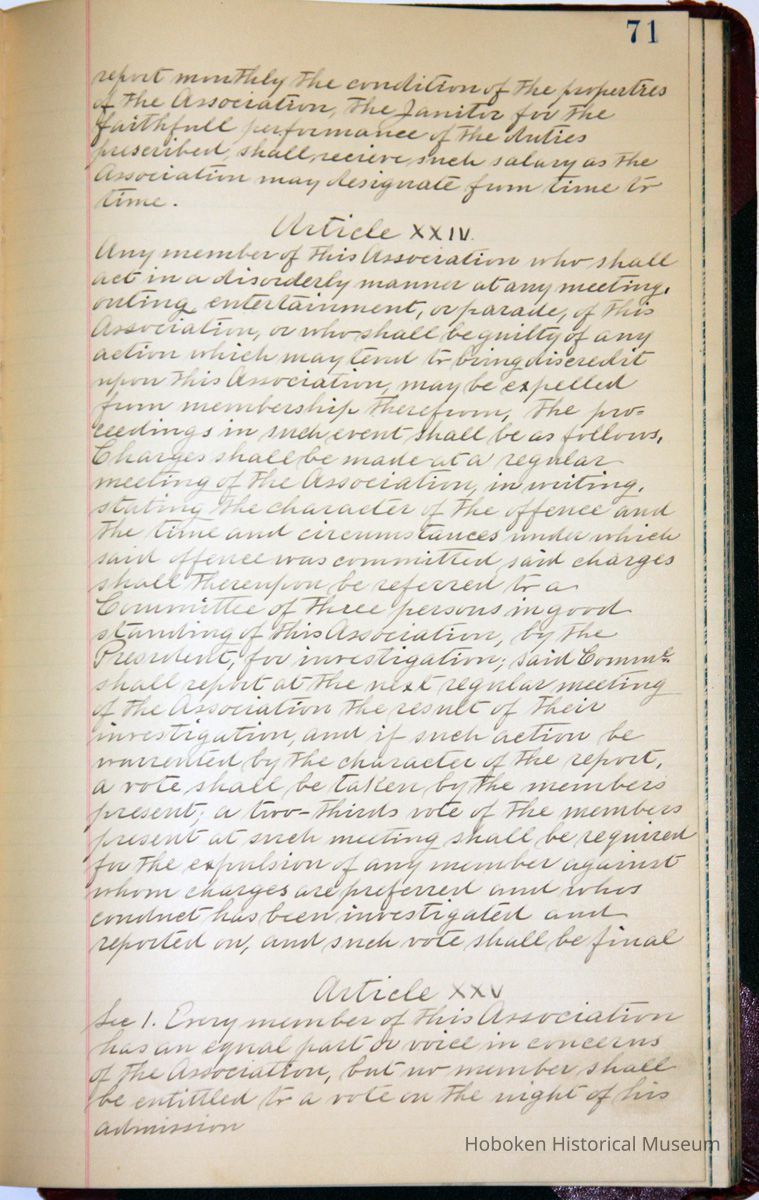 71
report monthly the condition of the properties
of the Association, the Janitor for the
faithfull performance of the duties
prescribed, shall recieve such salary as the
Association may designate from time to
time.
Article XXIV.
Any member of this Association who shall
act in a disorderly manner at any meeting,
outing, entertainment, or parade, of this
Association, or who shall be guilty of any
action which may tend to bring discredit
upon this Association, may be expelled
from membership therefrom, the pro=
ceedings in such event shall be as follows,
Charges shall be made at a regular
meeting of the Association, in writing,
stating the character of the offence and
the time and circumstances under which
said offence was committed, said charges
shall thereupon be referred to a
Committee of three persons in good
standing of this Association, by the
President, for investigation; said Commte
shall report at the next regular meeting
of the Association the result of their
investigation, and if such action be
warrented by the character of the report,
a vote shall be taken by the members
present; a two-thirds vote of the members
present at such meeting shall be required
for the expulsion of any member against
whom charges are preferred and whos
conduct has been investigated and
reported on, and such vote shall be final
Article XXV
Sec 1. Every member of this Association
has an equal part or voice in concerns
of the Association, but no member shall
be entitled to a vote on the night of his
admission
Hoboken Historical Museum